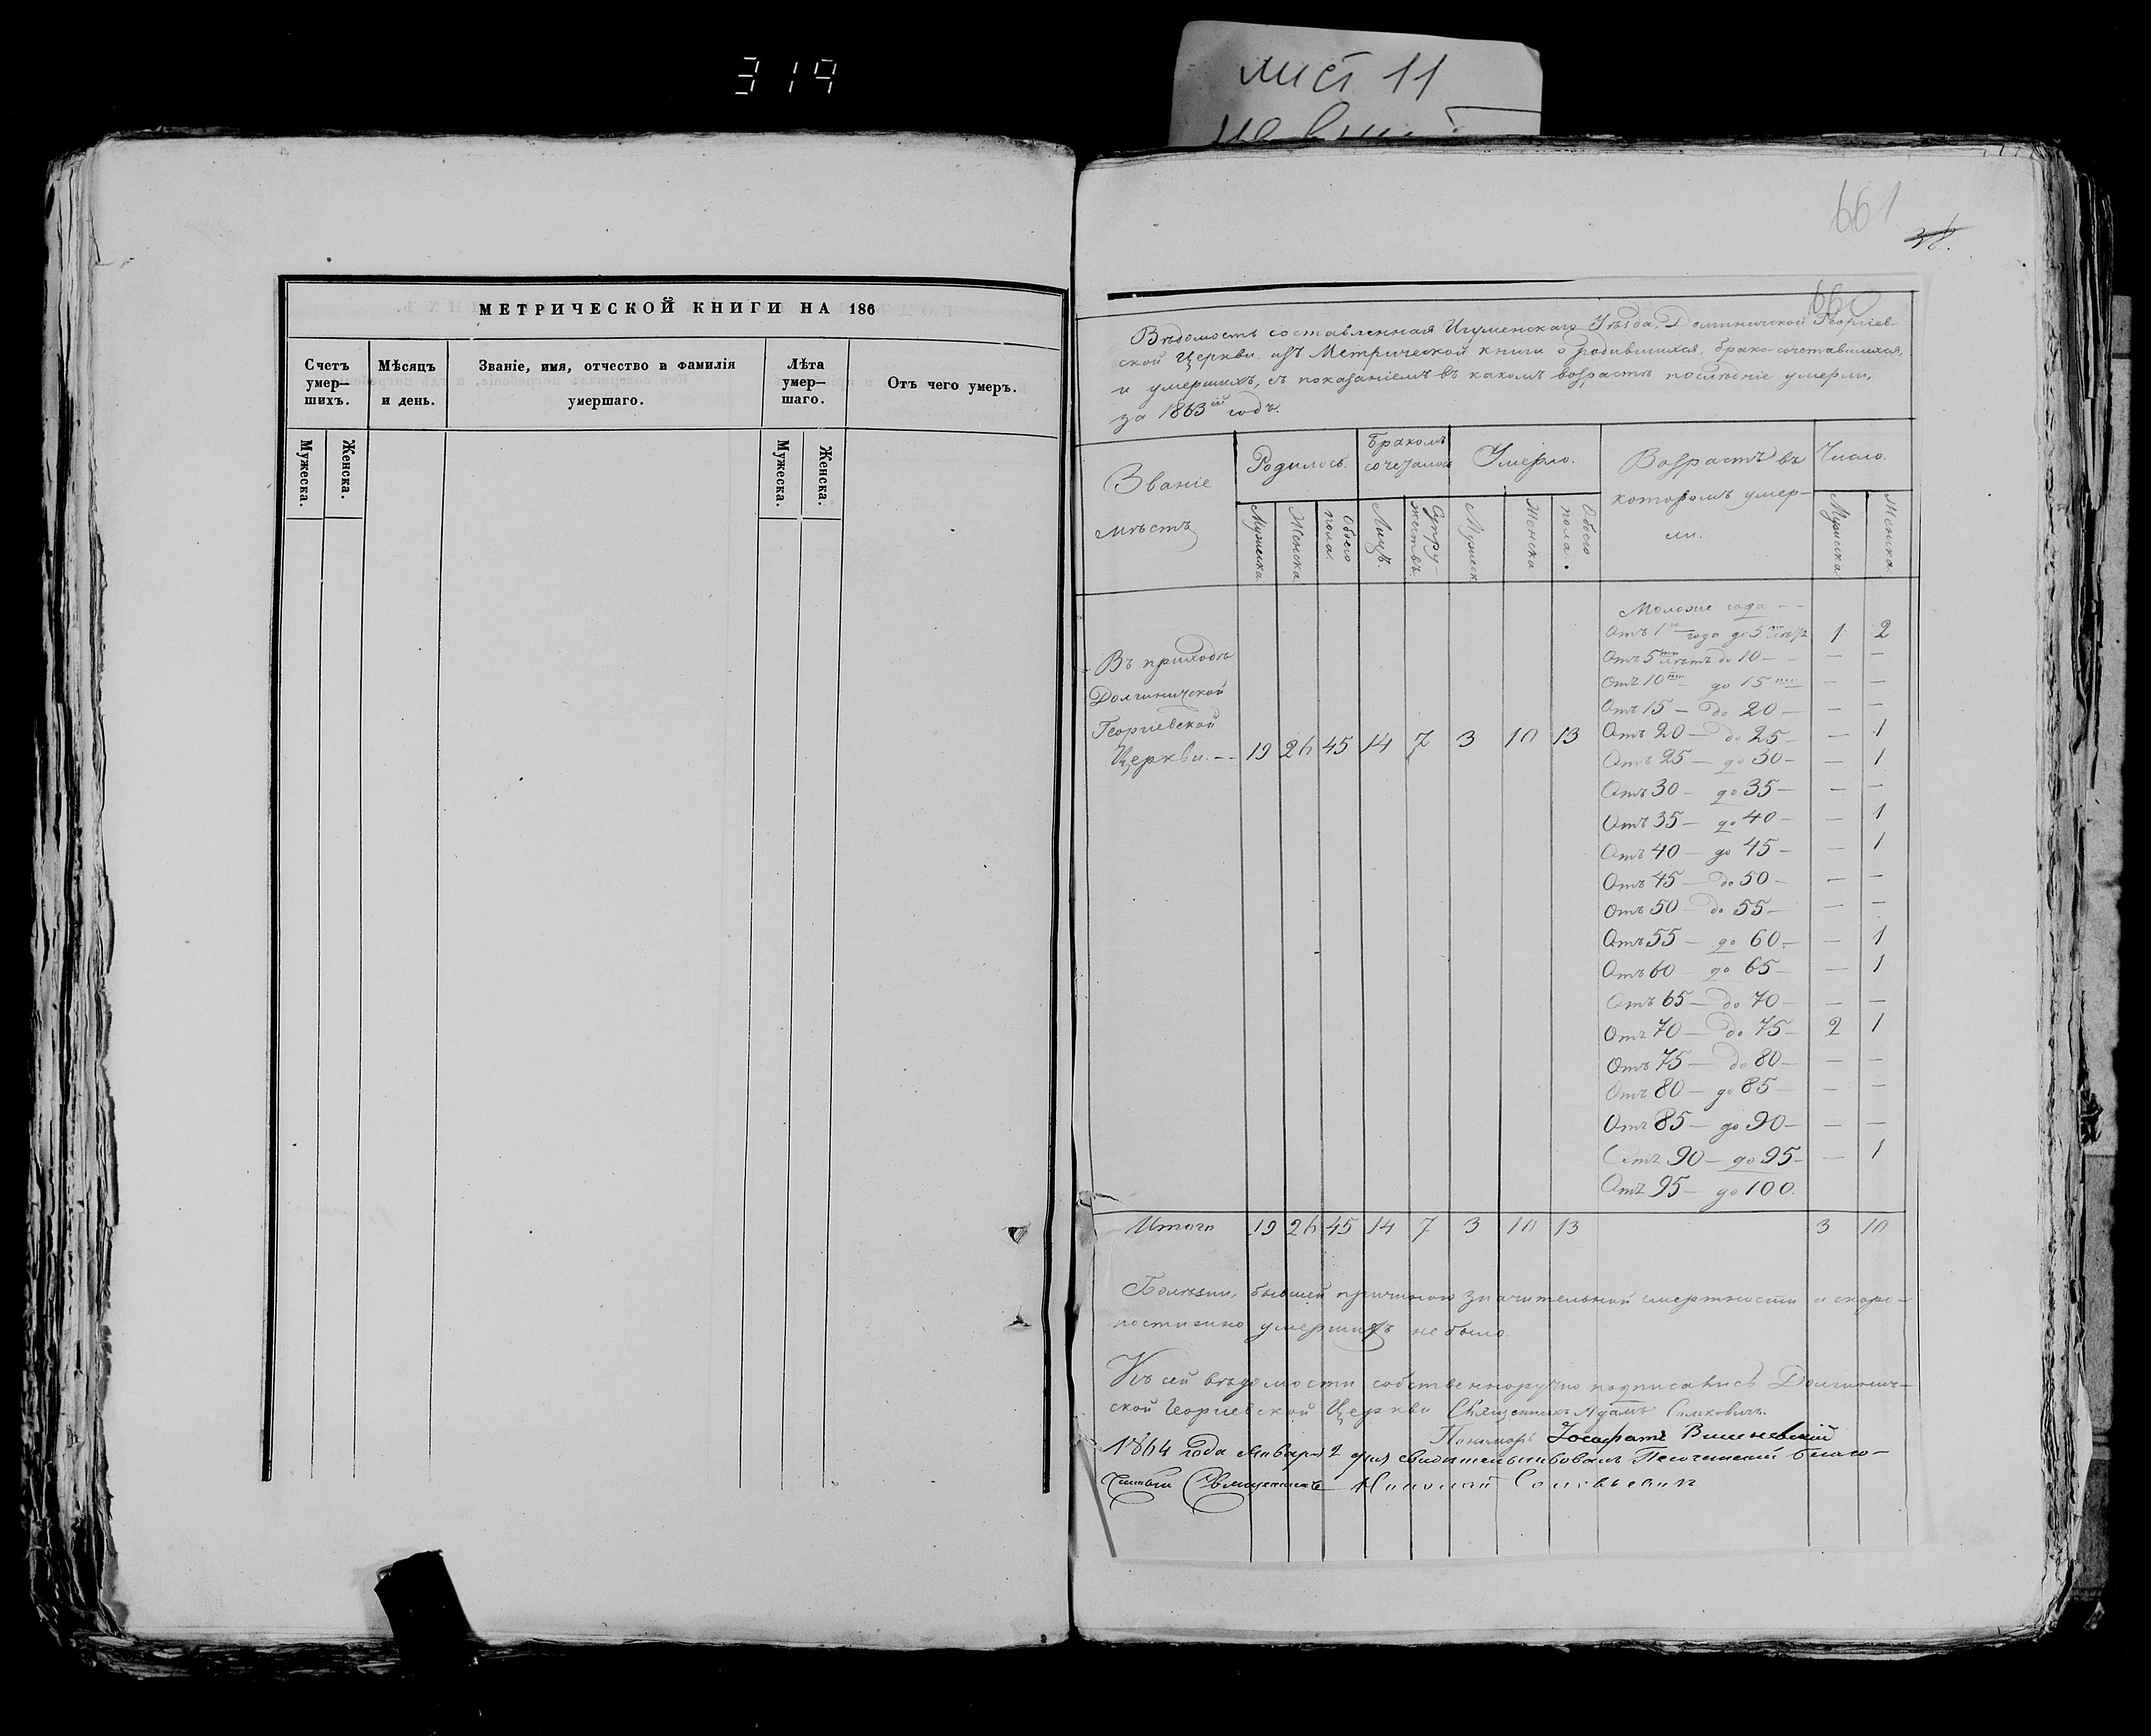 319
лист 11
661
38.
660
МЕТРИЧЕСКОЙ КНИГИ НА 186
Счетъ умер—шихъ.
Мѣсяцъ и день.
Званіе, имя, отчество и фамилія умершаго.
Лѣта умер—шаго.
Отъ чего умеръ.
Мужеска.
Женска.
Мужеска.
Женска.
Вѣдомость составленная Игуменскаго Уѣзда, Долгиничской Георгіев-
ской Церкви изъ Метрической книги о родившихся, брако-сочетавшихся,
и умершихъ, съ показаніемъ въ какомъ возрастѣ послѣдніе умерли,
за 1863ій годъ.
Званіе мѣстъ
Родилось.
Бракомъ
Умерло.
Возрастъ въ которомъ умер-ли.
Число.
Мужеска
Женска
Обоего пола.
Лицъ.
Супру-жествъ.
Мужеск
Женска
Обоего пола.
Мужеска
Женска
Моложе года - -
Отъ 1го года до 5ти лѣтъ 1 2
Отъ 5ти лѣтъ до 10 — — —
Отъ 10ти до 15ти — —
Отъ 15 — до 20 — — —
Въ приходѣ
Долгиничской
Георгіевской
Церкви. - - 19 26 45 14 7 3 10 13
Отъ 20 — до 25 — — 1
Отъ 25 — до 30 — — 1
Отъ 30 — до 35 — — —
Отъ 35 — до 40 — — 1
Отъ 40 — до 45 — — 1
Отъ 45 — до 50 — — —
Отъ 50 — до 55 — — —
Отъ 55 — до 60. — — 1
Отъ 60 — до 65 — — 1
Отъ 65 — до 70 — — —
Отъ 70 — до 75 — 2 1
Отъ 75 — до 80 — — —
Отъ 80 — до 85 — — —
Отъ 85 — до 90 — — —
Отъ 90 — до 95 — — 1
Отъ 95 — до 100.
Итого 19 26 45 14 7 3 10 13 3 10
Болѣзни, бывшей причиною значительной смертности и скоро-
постижно умершихъ не было.
Къ сей вѣдомости собственноручно подписались Долгинич-
ской Георгіевской Церкви Священникъ Адамъ
Пономарь Іосафатъ Вишневскій
1864 года Января 2 дня свидѣтельствовалъ благо-
чинный Священникъ Николай